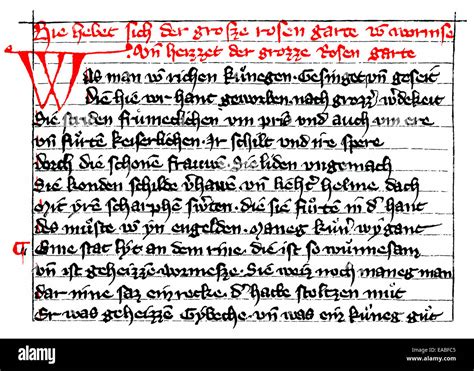 Hie hebet sich der grosze rosen garte vō wormse
Vn̄ heizzet der grozze Rosen garte
Was man vō richen kúnegen Gesinget vn̄ geseit
Die hie vor hant geworben nach grozz' w'dekeit
Die striden frumeclichen vm pris vnd auch vm ere
vn̄ fúrtē keiserlichen Ir schilt vnd ire spere
Dorch die schonē frauwē Die liden vngemach
Die konden schilde v'hawē vn̄ lieht' helme dach
Mit yrē scharphen sw'ten die sie fúrtē in d' hant
Das múste vō yn engelden Maneg kún' wygant
Eine stat lyt an dem rine die ist so wunnesam
vn̄ ist geheizzē wormesze Die weiz noch maneg man
dar nine saz ein recke d' hatte stoltzen mút
Er was geheizzē Gybeche vn̄ was ein kúneg gút
alamy stock photo
alamy
Image ID: EABFC5
www.alamy.com